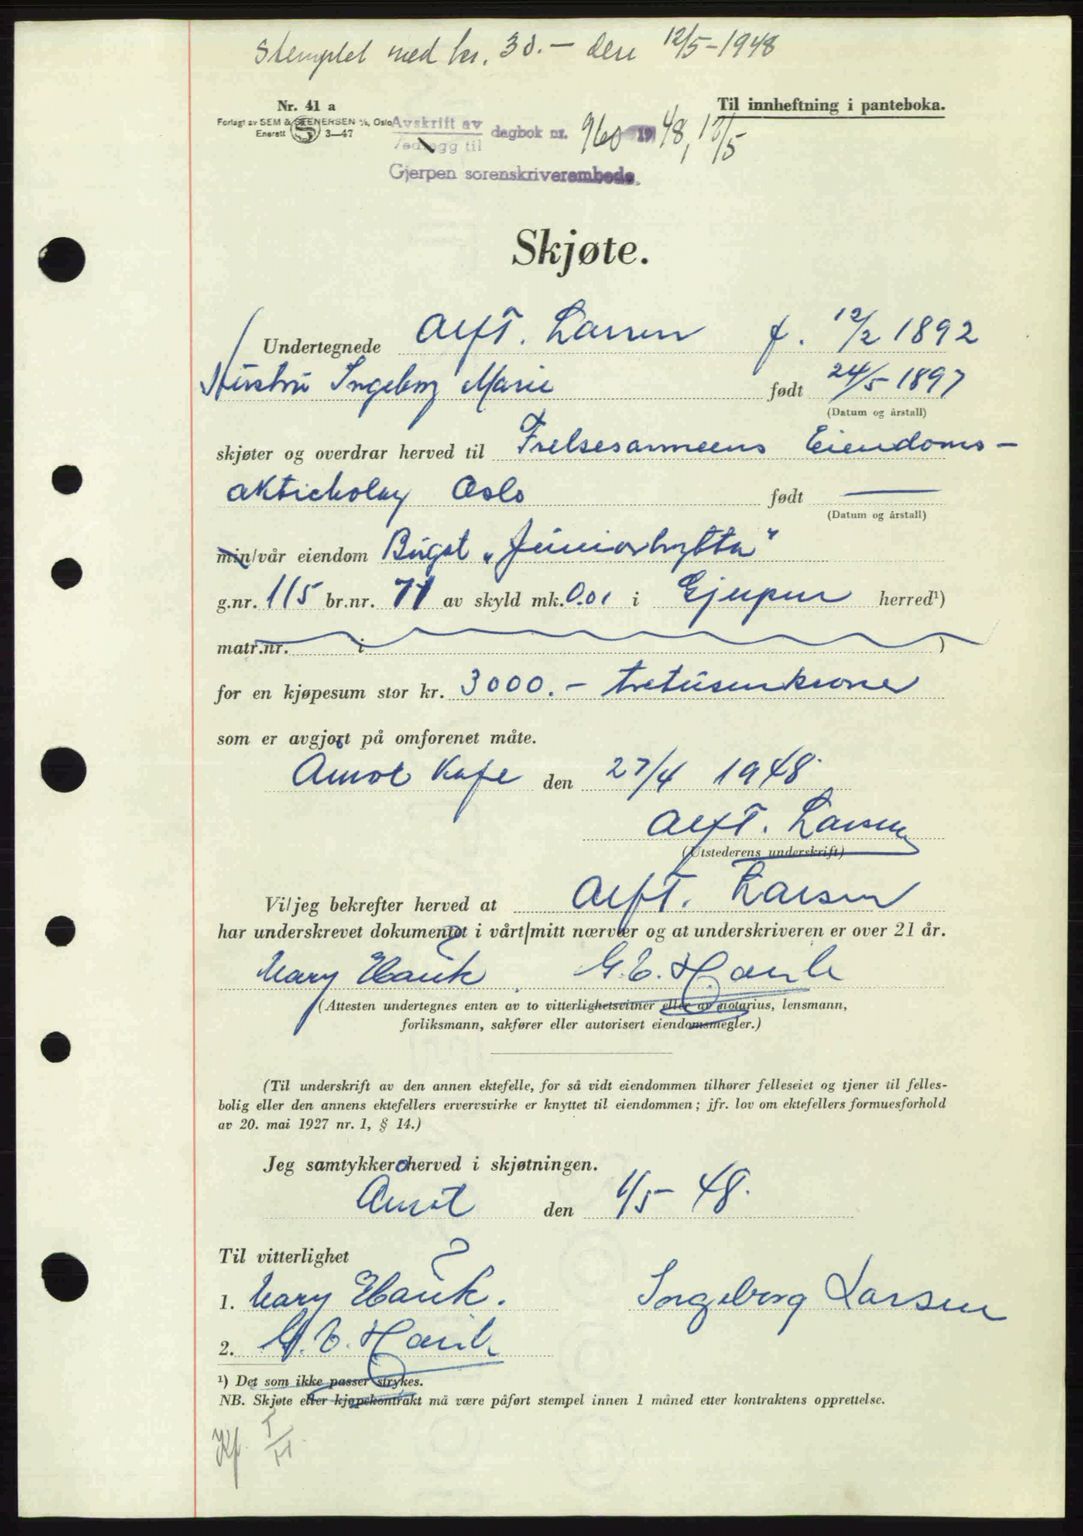 Stemplet med kr. 30.- den 12/5-1948
Nr. 41 a
Til innheftning i panteboka.
Forlagt av SEM & STENERSEN A/S, Oslo
Enerett S 3-47
Avskrift av
Vedlegg til dagbok nr. 960 1948, 12/5
Gjerpen sorenskriverembede.
Skjøte.
Undertegnede Alf T. Larsen f. 12/2 1892
Hustru Ingeborg Marie født 24/5-1897
(Datum og årstall)
skjøter og overdrar herved til Frelsesarmeens Eiendoms-
født
(Datum og årstall)
min/vår eiendom "Juniorhytta"
g.nr. 115 br.nr. 71 av skyld mk. 0.01 i Gjerpen herred¹)
matr.nr. i )
for en kjøpesum stor kr. 3000.- tretusenkroner
som er avgjort på omforenet måte.
Åmot Kafe den 27/4 1948
Alf T. Larsen
(Utstederens underskrift)
Vi/jeg bekrefter herved at Alf T. Larsen
har underskrevet dokumentet i vårt/mitt nærvær og at underskriveren er over 21 år.
Mary Hauk G.E. Hauk
(Attesten undertegnes enten av to vitterlighetsvitner eller av notarius, lensmann,
forliksmann, sakfører eller autorisert eiendomsmegler.)
(Til underskrift av den annen ektefelle, for så vidt eiendommen tilhører felleseiet og tjener til felles-
bolig eller den annens ektefellers ervervsvirke er knyttet til eiendommen; jfr. lov om ektefellers formuesforhold
av 20. mai 1927 nr. 1, § 14.)
Jeg samtykker herved i skjøtningen.
Åmot den 1/5-48.
Til vitterlighet
1. Mary Hauk. Ingeborg Larsen
2. G.E. Hauk
¹) Det som ikke passer strykes.
NB. Skjøte eller kjøpekontrakt må være påført stempel innen 1 måned etter kontraktens opprettelse.